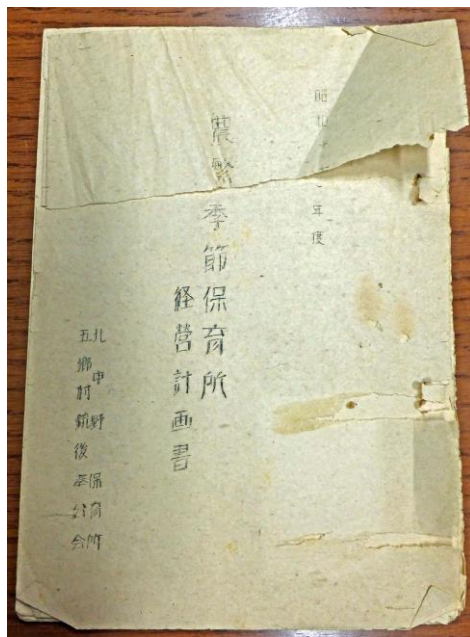 昭和十
年度
農繁季節保育所
経営計画書
北中野保育所
五郷村銃後奉公会